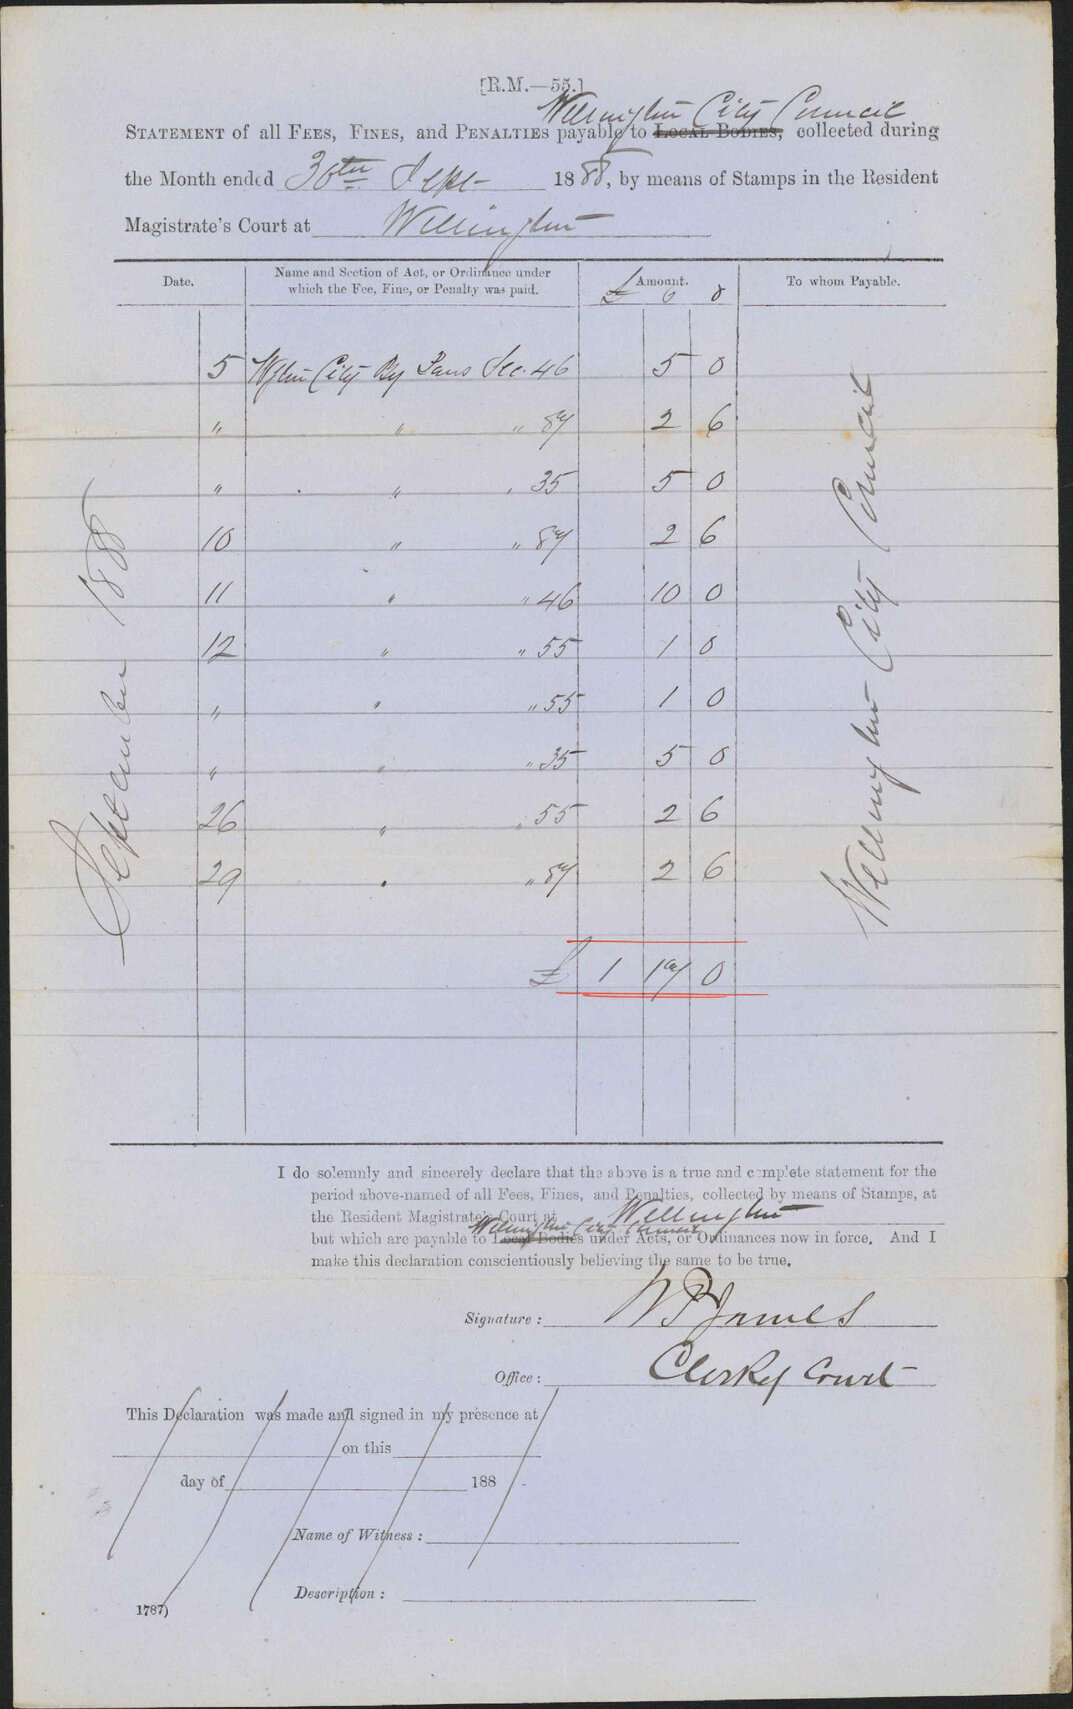 [R.M.—55.]
Wellington City Council
STATEMENT of all FEES, FINES, and PENALTIES payable to LOCAL BODIES, collected during
the Month ended 30th Sept 1888, by means of Stamps in the Resident
Magistrate's Court at Wellington
Date. Name and Section of Act, or Ordinance under which the Fee, Fine, or Penalty was paid. Amount. To whom Payable.
£ s d
5 Wgtn City By Laws Sec. 46 5 0
" " " 87 2 6
" " " 35 5 0
10 " " 87 2 6
11 " " 46 10 0
12 " " 55 1 0
" " " 55 1 0
" " " 35 5 0
26 " " 55 2 6
29 " " 87 2 6
£ 1 17 0
September 1888
Wellington City Council
I do solemnly and sincerely declare that the above is a true and complete statement for the
period above-named of all Fees, Fines, and Penalties, collected by means of Stamps, at
the Resident Magistrate's Court at Wellington
Wellington City Council
but which are payable to Local Bodies under Acts, or Ordinances now in force. And I
make this declaration conscientiously believing the same to be true.
Signature: W P James
Office: Clerk of Court
This Declaration was made and signed in my presence at
on this
day of 188
Name of Witness:
Description:
1787)